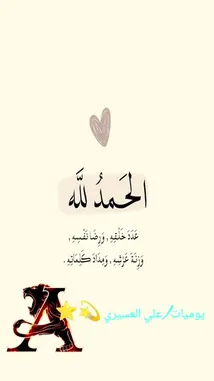 الحَمدُ للَّه
عَدَدَ خَلْقِهِ , وَرِضَا نَفْسِهِ ,
وَزِنَةَ عَرْشِهِ , وَمِدَادَ كَلِمَاتِهِ .
يوميات/علي العسيري
A